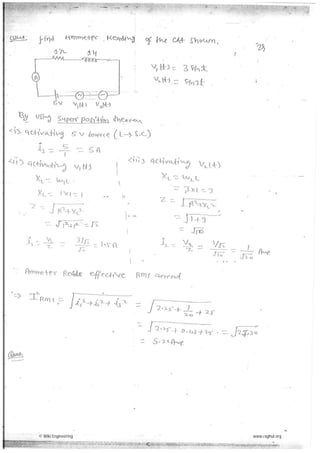 Ques: find Ammeter Reading of the ckt shown.
1Ω 1H
V₁(t) = 3 sint
V₂(t) = sin3t
A
5V V₁(t) V₂(t)
By using Superposition theorem
<i> activating 5 V source (L → S.C)
I₂ = 5/1 = 5A
<ii> activating V₁(t)
X_L = ω₁L
X_L = 1×1 = 1
Z = √R²+X_L²
= √1²+1² = √2
= 1.5A
<iii> activating V₂(t)
X_L = ω₂L
= 3×1 = 3
Z = √R²+X_L²
= √1+9
= √10
I₂ = V₂/Z = 1/√2/√10 = 1/√20 Amp
∴ Ammeter Reads effective RMS current
⇒ I Rms = √I₁²+I₂²+I₃² = √2.25 + 1/20 + 25
= √2.25 + 0.05 + 25
= 5.22 Amp
Ques:
© Wiki Engineering
www.raghul.org